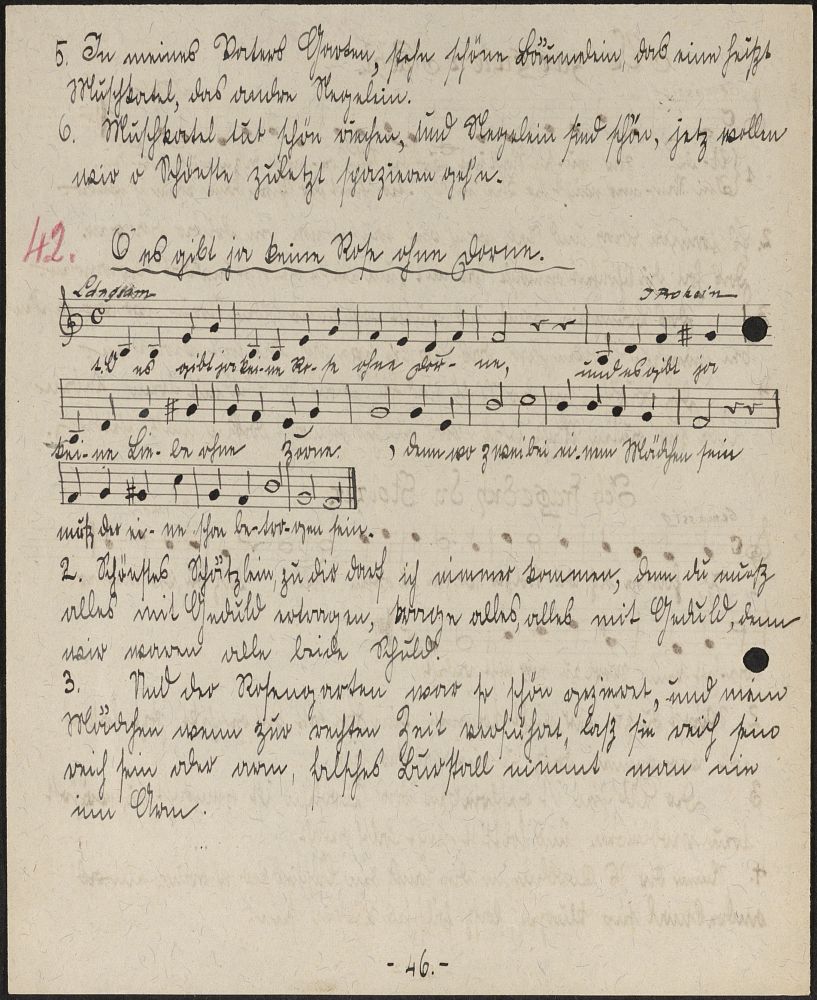 5. In meines Vaters Garten, stehn schöne Bäumelein, das eine heißt
Muschkatel, das andre Negelein.
6. Muschkatel tut schön riechen, und Negelein sind schön, jetz wollen
wir o Schönste zuletzt spazieren geh'n.
42. O es gibt ja keine Rose ohne Dorne.
Langsam
1. O es gibt ja kei-ne Ro-se ohne Dor-ne, und es gibt ja
kei-ne Lie-be ohne Zorne, denn wo zwei bei ei-nem Mädchen sein
muß der ei-ne schon be-tro-gen sein.
2. Schönstes Schätzlein, zu dir darf ich nimmer kommen, denn du mußt
alles mit Geduld ertragen, trage alles, alles mit Geduld, denn
wir waren alle beide Schuld.
3. Und der Rosengarten war so schön gezieret, und mein
Mädchen wenn zur rechten Zeit verführet, laß sie reich sein
reich sein oder arm, falsches nimmt man nie
im Arm.
- 46. -